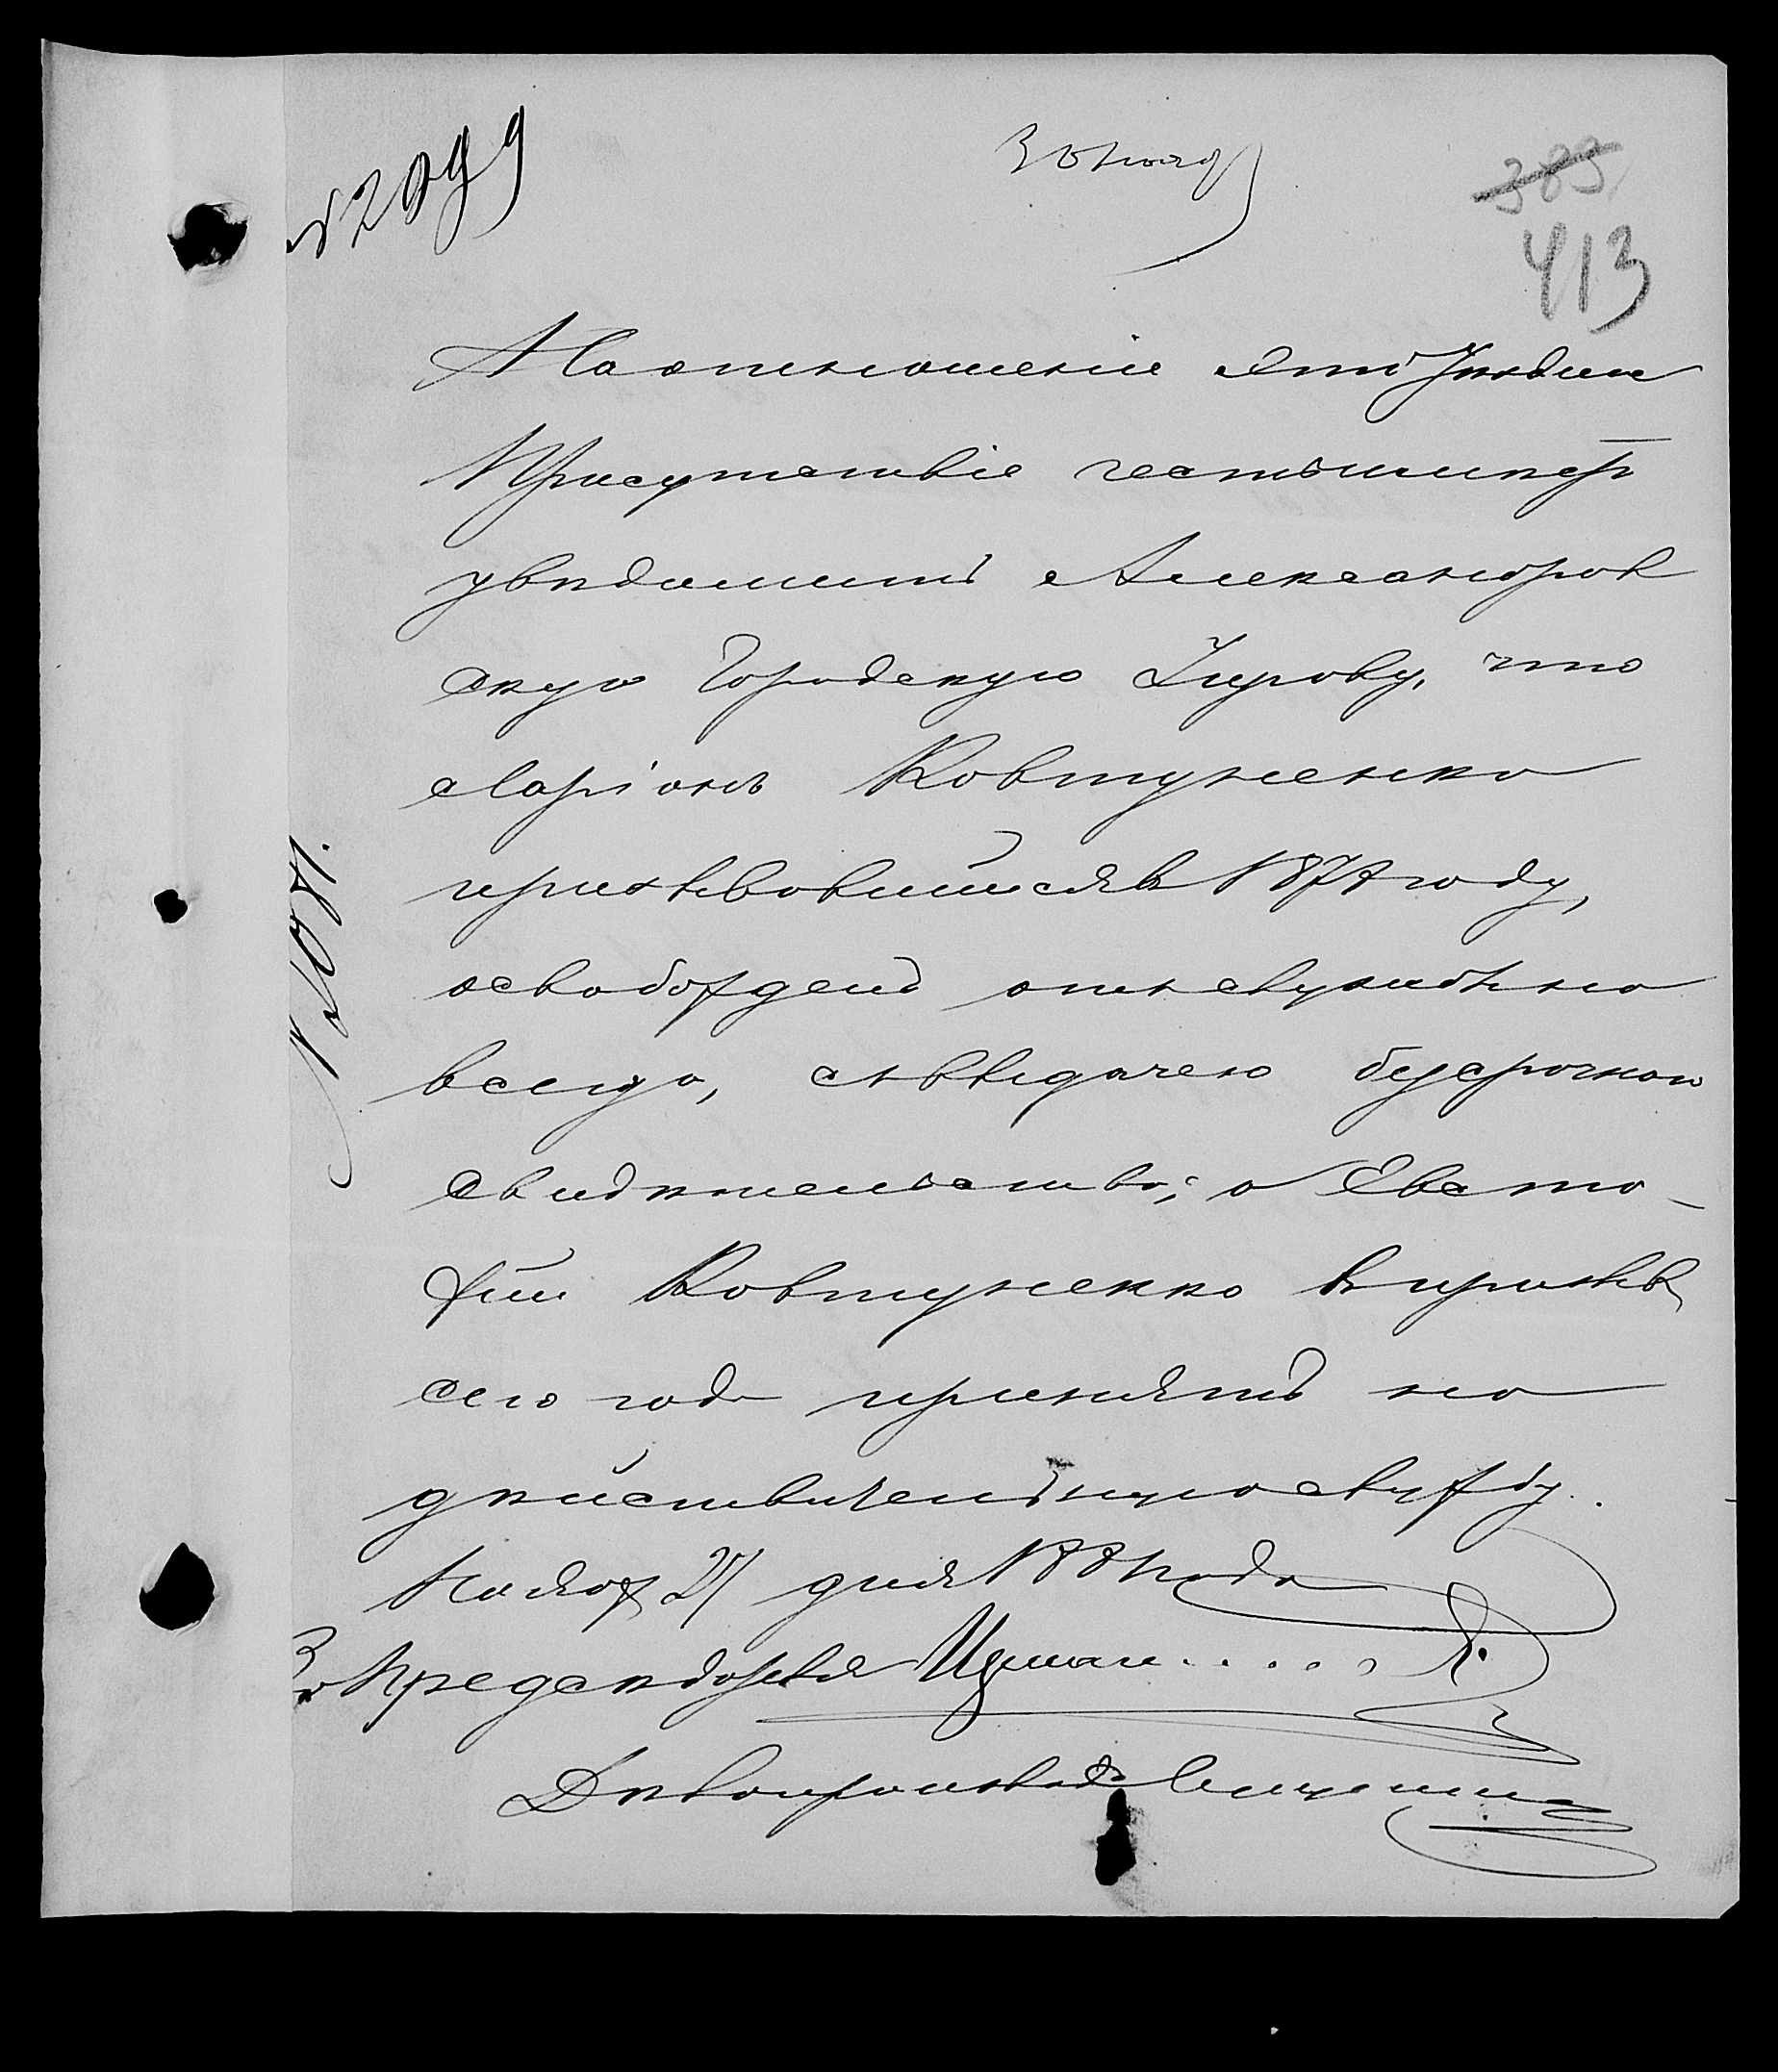 № 2099
30 Нояб
389
413
На отношеніе это Уѣздное
Присутствіе честь имѣетъ
увѣдомить Александров
скую Городскую Управу, что
Ларіонъ Ковтуненко
призывавшійся въ 1874 году,
освобожденъ отъ службы на
всегда, съ выдачею безсрочнаго
свидѣтельства; а Евста-
фій Ковтуненко въ призывъ
сего года принятъ на
дѣйствительную службу.
Ноября 27 дня 188 года
За Предсѣдателя
Дѣлопроизвод